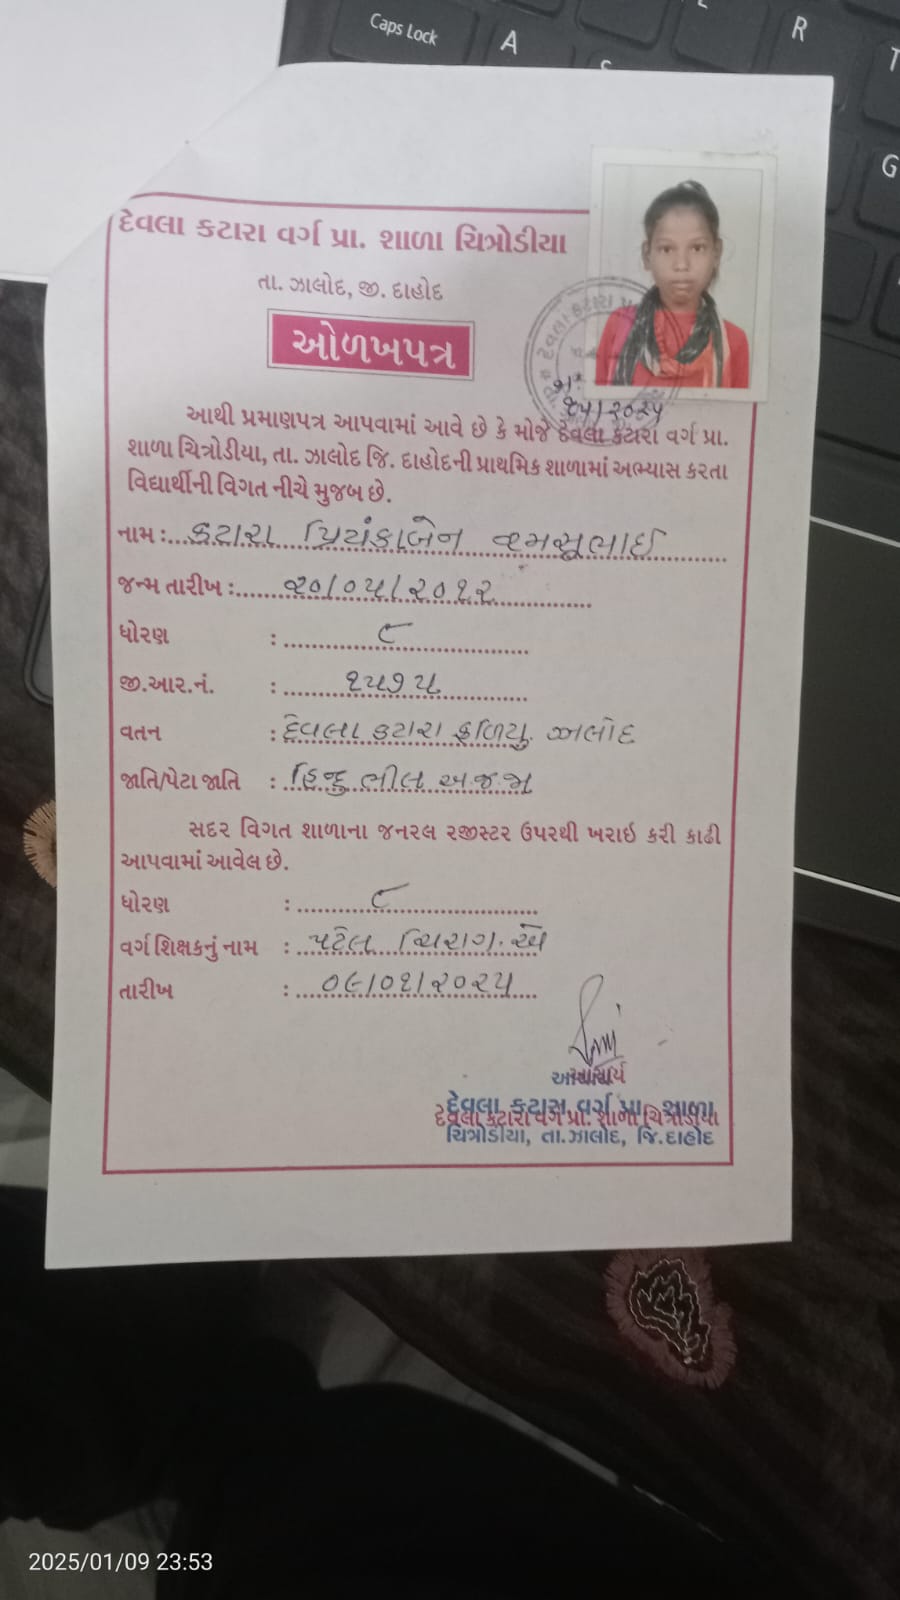 Caps Lock
A
R
T
G
દેવલા કટારા વર્ગ પ્રા. શાળા ચિત્રોડીયા
તા. ઝાલોદ, જી. દાહોદ
ઓળખપત્ર
આથી પ્રમાણપત્ર આપવામાં આવે છે કે મોજે દેવલા કટારા વર્ગ પ્રા.
શાળા ચિત્રોડીયા, તા. ઝાલોદ જિ. દાહોદની પ્રાથમિક શાળામાં અભ્યાસ કરતા
વિદ્યાર્થીની વિગત નીચે મુજબ છે.
નામ : કટારા પ્રિયંકાબેન રમસુભાઈ
જન્મ તારીખ : ૨૦/૦૫/૨૦૧૨
ધોરણ : ૮
જી.આર.નં. : ૧૫૭૫
વતન : દેવલા કટારા ફળિયુ. ઝાલોદ
જાતિ/પેટા જાતિ : હિન્દુ ભીલ અ.જ.જા
સદર વિગત શાળાના જનરલ રજીસ્ટર ઉપરથી ખરાઇ કરી કાઢી
આપવામાં આવેલ છે.
ધોરણ : ૮
વર્ગ શિક્ષકનું નામ : પટેલ ચિરાગ. એ
તારીખ : ૦૯/૦૧/૨૦૨૫
આચાર્ય
દેવલા કટારા વર્ગ પ્રા. શાળા
દેવલા કટારા વર્ગ પ્રા. શાળા ચિત્રોડીયા
ચિત્રોડીયા, તા.ઝાલોદ, જિ.દાહોદ
2025/01/09 23:53